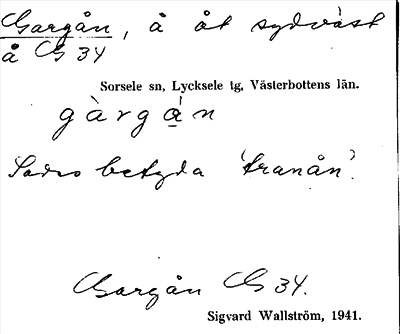 Gargån, å åt sydväst
å G 34
Sorsele sn, Lycksele tg, Västerbottens län.
gàrgán
Sades betyda 'tranån'.
Gargån G 34.
Sigvard Wallström, 1941.